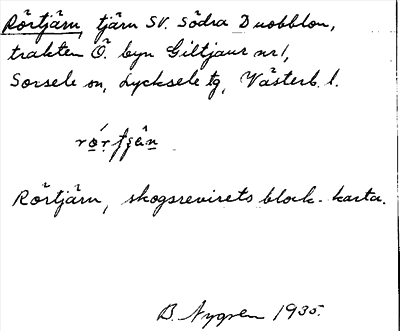 Rörtjärn, tjärn SV. Södra Duobblon,
trakten Ö. byn Giltjaur nr 1,
Sorsele sn, Lycksele tg, Västerb. l.
Rörtjärn, skogsrevirets block-karta.
B. Nygren 1935.